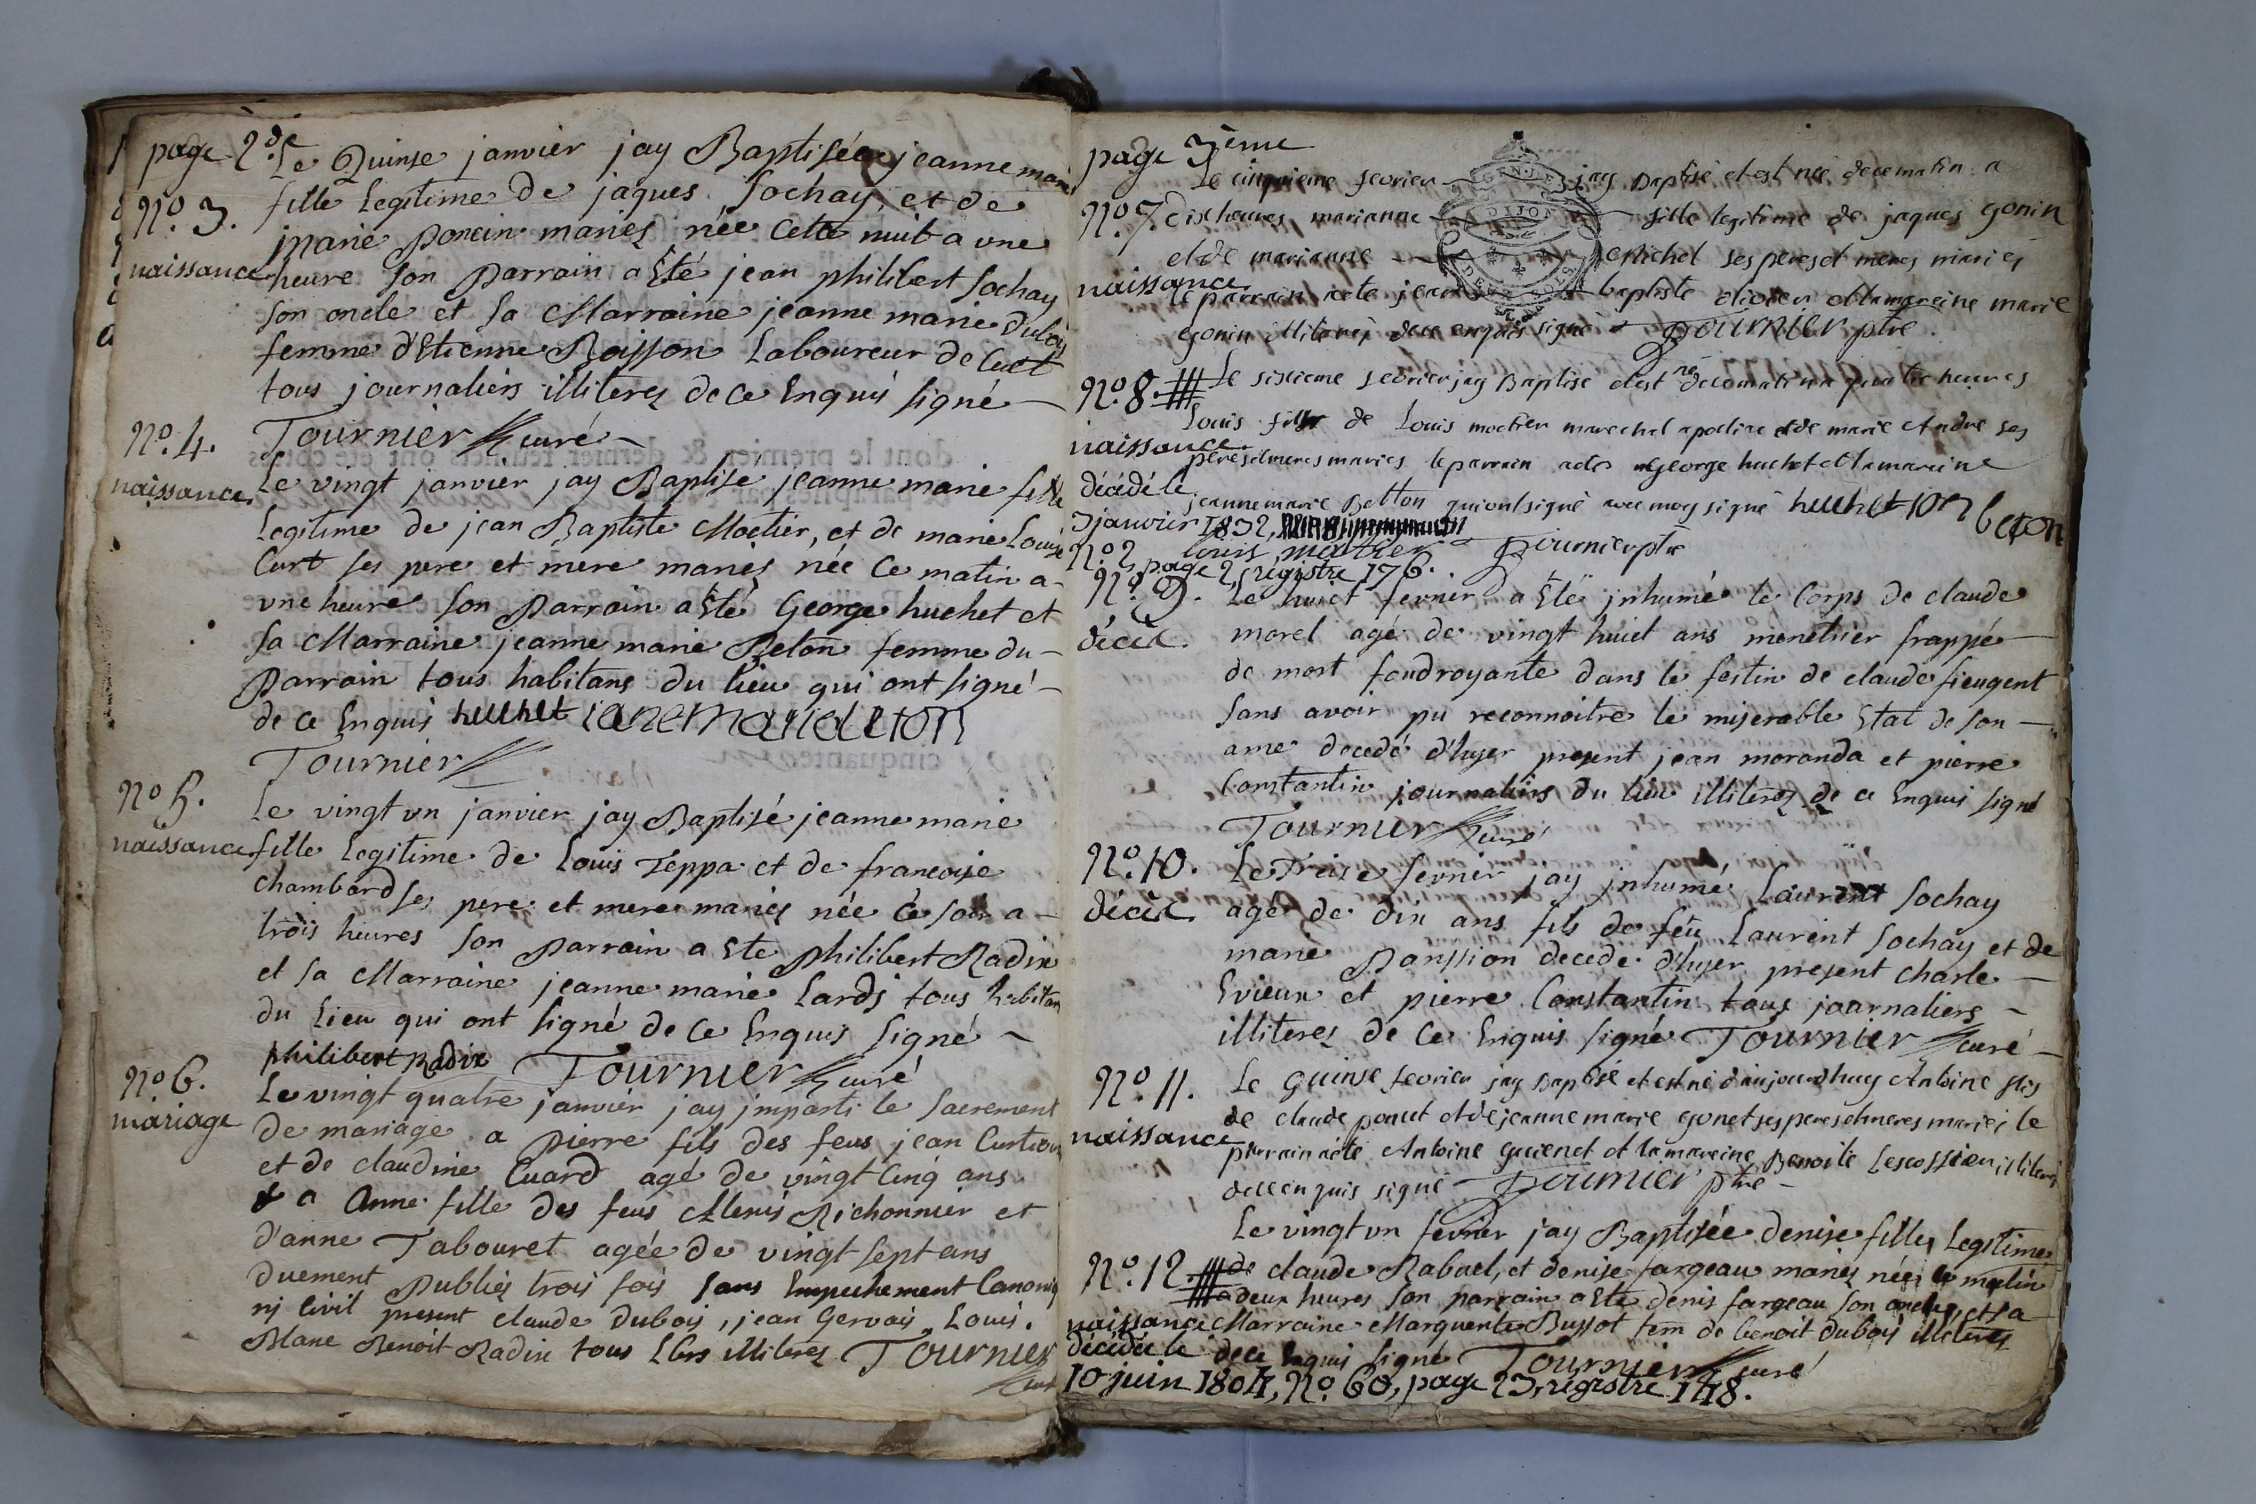 page 2de
Le Quinse janvier jay Baptisée jeanne marie
No. 3. fille legitime de jaques Sochay, et de
marie Poncin mariés née cette nuit a une
naissance heure son Parrain a Eté jean philibert Sochay
son oncle et sa Marraine jeanne marie dubois
femme d'Etienne Boisson Laboureur de Cuet
tous journaliers illiteres de ce Enquis signé
No. 4. Tournier curé
naissance Le vingt janvier jay Baptisé jeanne marie fille
legitime de jean Baptiste Moctier, et de marie Louise
Curt ses pere et mere mariés née ce matin a
vne heure son Parrain a Eté George huchet et
sa Marraine jeanne marie Beton femme du
Parrain tous habitans du lieu qui ont signé
de ce Enquis huchet
Tournier
No 5. Le vingt vn janvier jay Baptisé jeanne marie
naissance fille legitime de Louis Teppa et de francoise
chambard ses pere et mere mariés née ce soir a
trois heures son Parrain a Ete Philibert Radix
et sa Marraine jeanne marie Lardi tous habitan
du lieu qui ont signé de ce Enquis signé
philibert Radix Tournier curé
No 6. Le vingt quatre janvier jay imparti le sacrement
mariage de mariage a pierre fils des feus jean Curtiou
et de claudine Cuard agé de vingt cinq ans
& a Anne fille des feus Alexis Richonnier et
d'anne Tabouret agée de vingt sept ans
duement Publiés trois fois sans Empechement Canoniq
nj Civil present claude dubois, jean Gervais, Louis
Blanc Benoit Radix tous Lbrs illiteres Tournier
curé
page 3ème
Le cinquieme fevrier jay Baptisé et est née de ce matin a
No. 7. dix heures marianne fille legitime de jaques gonin
et de marianne michel ses peres et meres mariés
naissance le parrain a ete jean baptiste et la mareine marie
gonin illiterés de ce enquis signé Tournier ptre.
DIJON
DEUX SOLS
No. 8. Le sisieme fevrier jay Baptisé et est né de ce matin a quatre heures
Louis fils de Louis moctier marechal et de marie Andre ses
naissance peres et meres mariés le parrain a ete George huchet et la mareine
décédé le jeanne marie Betton qui ont signé avec moy signé huchet beton
3 janvier 1832, louis moctier Tournier ptre
No. 2, page 2, régistre 176.
No. 9. Le huict fevrier a Eté jnhumé le Corps de claude
décès. morel agé de vingt huict ans menetrier frappé
de mort foudroyante dans le festin de claude fieugent
sans avoir pu reconnoitre le miserable Etat de son
ame decedé d'hyer present jean moranda et pierre
Constantin journaliers du lieu illiteres de ce Enquis signé
Tournier curé
No. 10. Le Treise fevrier jay jnhumé Laurent Sochay
décès agé de dix ans fils de feu Laurent Sochay et de
marie Panssion decedé d'hyer present charle
Evieux et pierre Constantin tous journaliers
illiteres de ce Enquis signé Tournier curé
No. 11. Le quinse fevrier jay Baptisé et est né d'aujourdhuy Antoine fils
de claude ponut et de jeanne marie gonet ses peres et meres mariés le
naissance parrain a été Antoine guienet et la mareine Benoite Lescossieu illiterés
de ce enquis signé Tournier ptre
Le vingt vn fevrier jay Baptisée denise fille Legitime
No. 12. de claude Rabuel, et denise fargeau mariés née ce matin
a deux heures son parrain a Eté denis fargeau son oncle, et sa
naissance Marraine Marguerite Bussot fem de benoit dubois illiteres
décédée le de ce Enquis signé Tournier curé
10 juin 1804, No. 60, page 23, régistre 148.